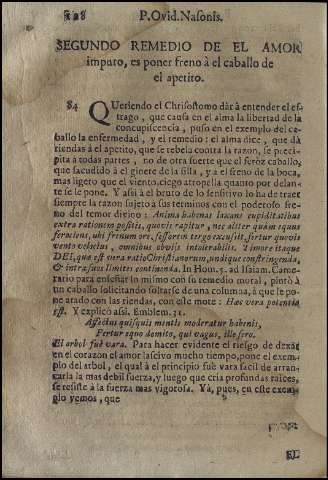 128 P. Ovid. Nasonis.
SEGUNDO REMEDIO DE EL AMOR
impuro, es poner freno à el caballo de
el apetito.
84 Queriendo el Chrisostomo dàr à entender el es-
trago, que causa en el alma la libertad de la
concupiscencia, puso en el exemplo del ca-
ballo la enfermedad, y el remedio: el alma dice, que dà
riendas à el apetito, que se rebela contra la razon, se preci-
pita à todas partes, no de otra suerte que el feròz caballo,
que sacudido à el ginete de la silla, y a el freno de la boca,
mas ligero que el viento, ciego atropella quanto por delan-
te se le pone. Y assi à el bruto de lo sensitivo lo ha de traer
siempre la razon sujeto à sus terminos con el poderoso fre-
no del temor divino: Anima habenas laxans cupiditatibus
extra rationem positis, quovis rapitur, nec aliter quàm equus
ferociens, ubi frenum ore, sessorem tergo excussit, fertur quovis
vento velocius, omnibus obviis intolerabilis. Timore itaque
DEI, quæ est vera ratio Christianorum, undique constringenda,
& intra suos limites continenda. In Hom. 5. ad Isaiam. Came-
rario para enseñar lo mismo con su remedio moral, pintò à
un caballo solicitando soltarse de una columna, à que le po-
ne atado con las riendas, con este mote: Hæc vera potentia
est. Y explicò assi. Emblem. 31.
Affectus quisquis mentis moderatur habenis,
Fertur equo domito, qui vagus, ille fero.
El arbol fuè vara. Para hacer evidente el riesgo de dexàr
en el corazon el amor lascivo mucho tiempo, pone el exem-
plo del arbol, el qual à el principio fuè vara facil de arran-
carla la mas debil fuerza, y luego que cria profundas raices,
se resiste à la fuerza mas vigorosa. Yà, pues, en este exem-
plo vemos, que